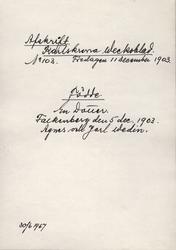 Afskrift
Karlskrona Weckoblad
No 103. Fredagen 11 december 1903.
Födde
En Dotter.
Falkenberg den 5 dec. 1903.
Agnes och Carl Wedin.
30/6 1967